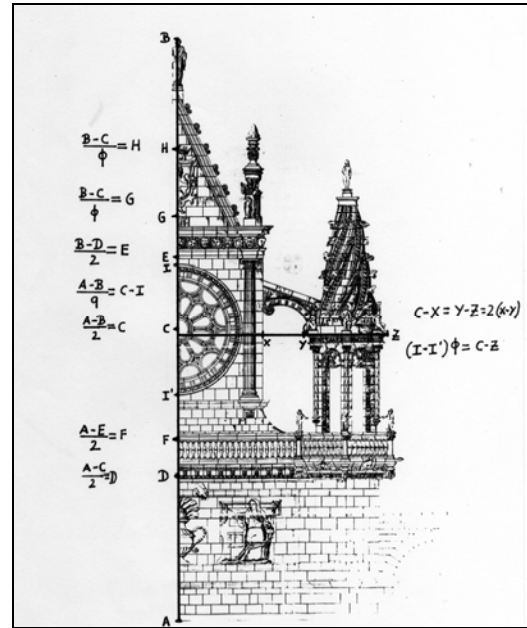 B
B-C/ϕ = H
H
B-C/ϕ = G
G
B-D/2 = E
E
I
A-B/9 = C-I
A-B/2 = C
C
X
Y
Z
C-X = Y-Z = 2(x-y)
(I-I')ϕ = C-Z
I'
A-E/2 = F
F
A-C/2 = D
D
A